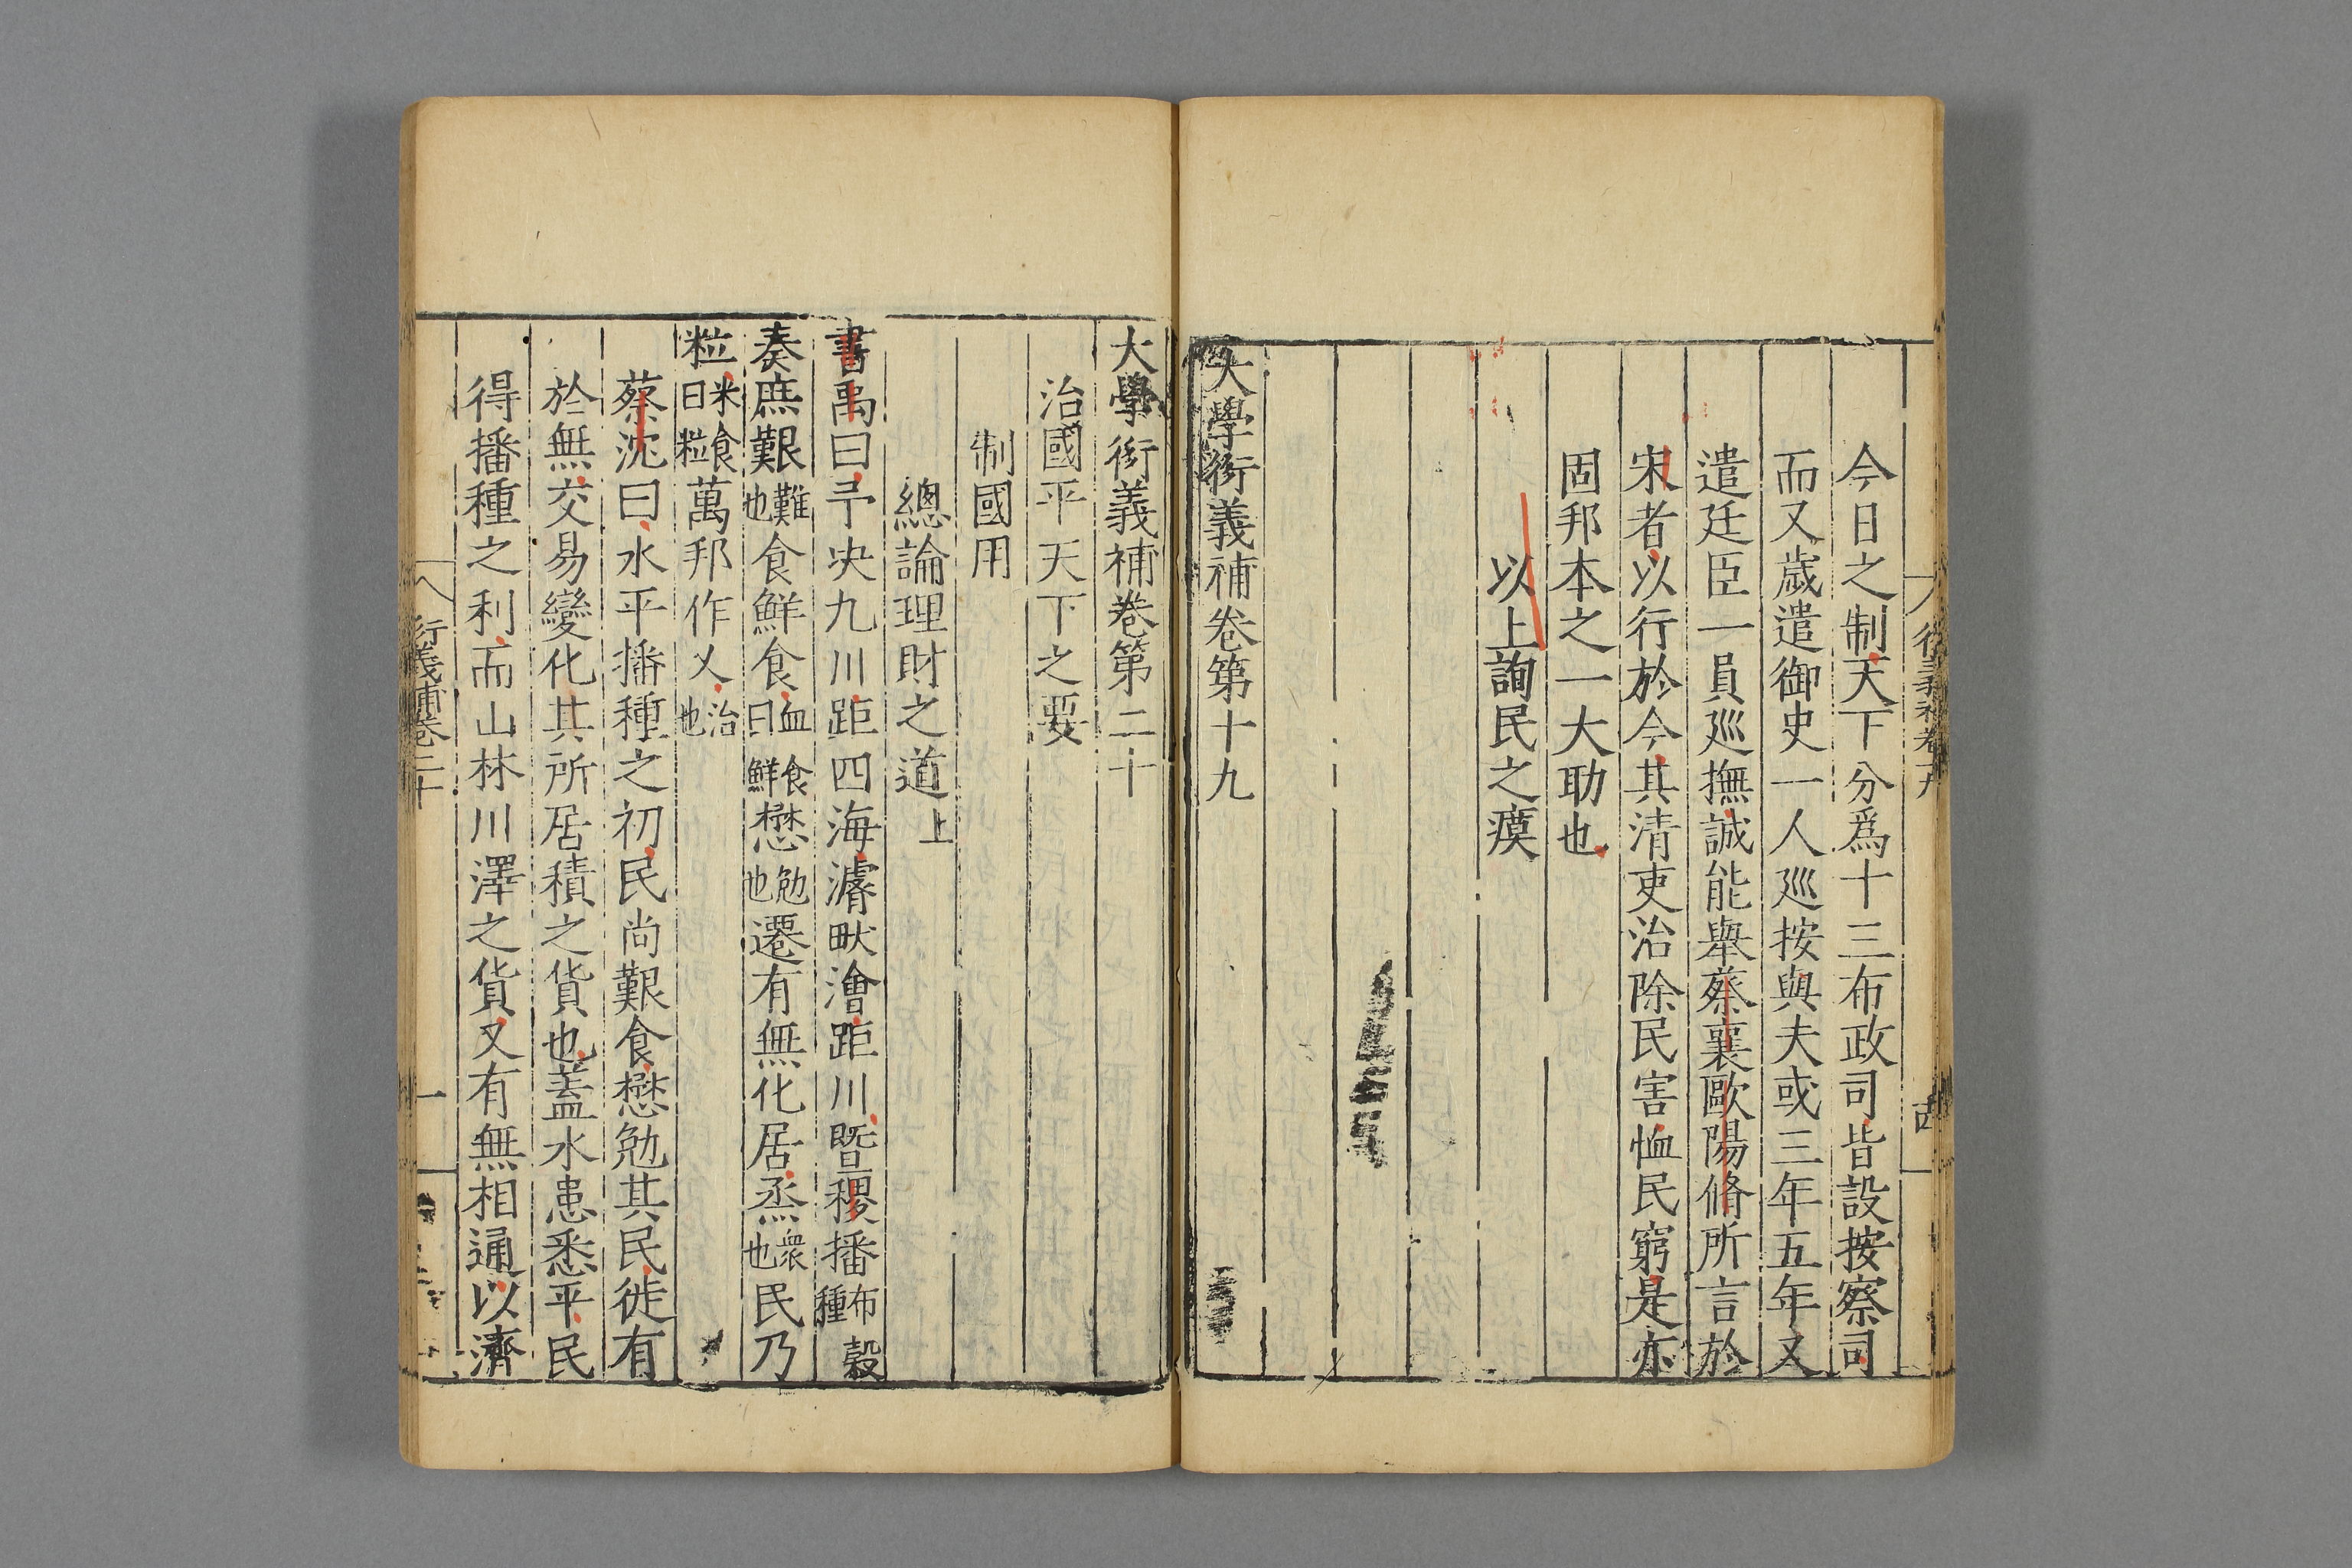 今日之制天下分爲十三布政司皆設按察司
而又歲遣御史一人廵按與夫或三年五年又
遣廷臣一員廵撫誠能舉蔡襄歐陽脩所言於
宋者以行於今其清吏治除民害恤民窮是亦
固邦本之一大助也
以上詢民之瘼
大學衍義補卷第十九
大學衍義補卷第二十
治國平天下之要
制國用
總論理財之道上
書禹曰予决九川距四海濬畎澮距川曁稷播布種穀
奏庶艱難也食鮮食血食曰鮮懋勉也遷有無化居烝衆也民乃
粒米食曰粒萬邦作乂治也
蔡沈曰水平播種之初民尚艱食懋勉其民徙有
於無交易變化其所居積之貨也蓋水患悉平民
得播種之利而山林川澤之貨又有無相通以濟
衍義補卷二十
一